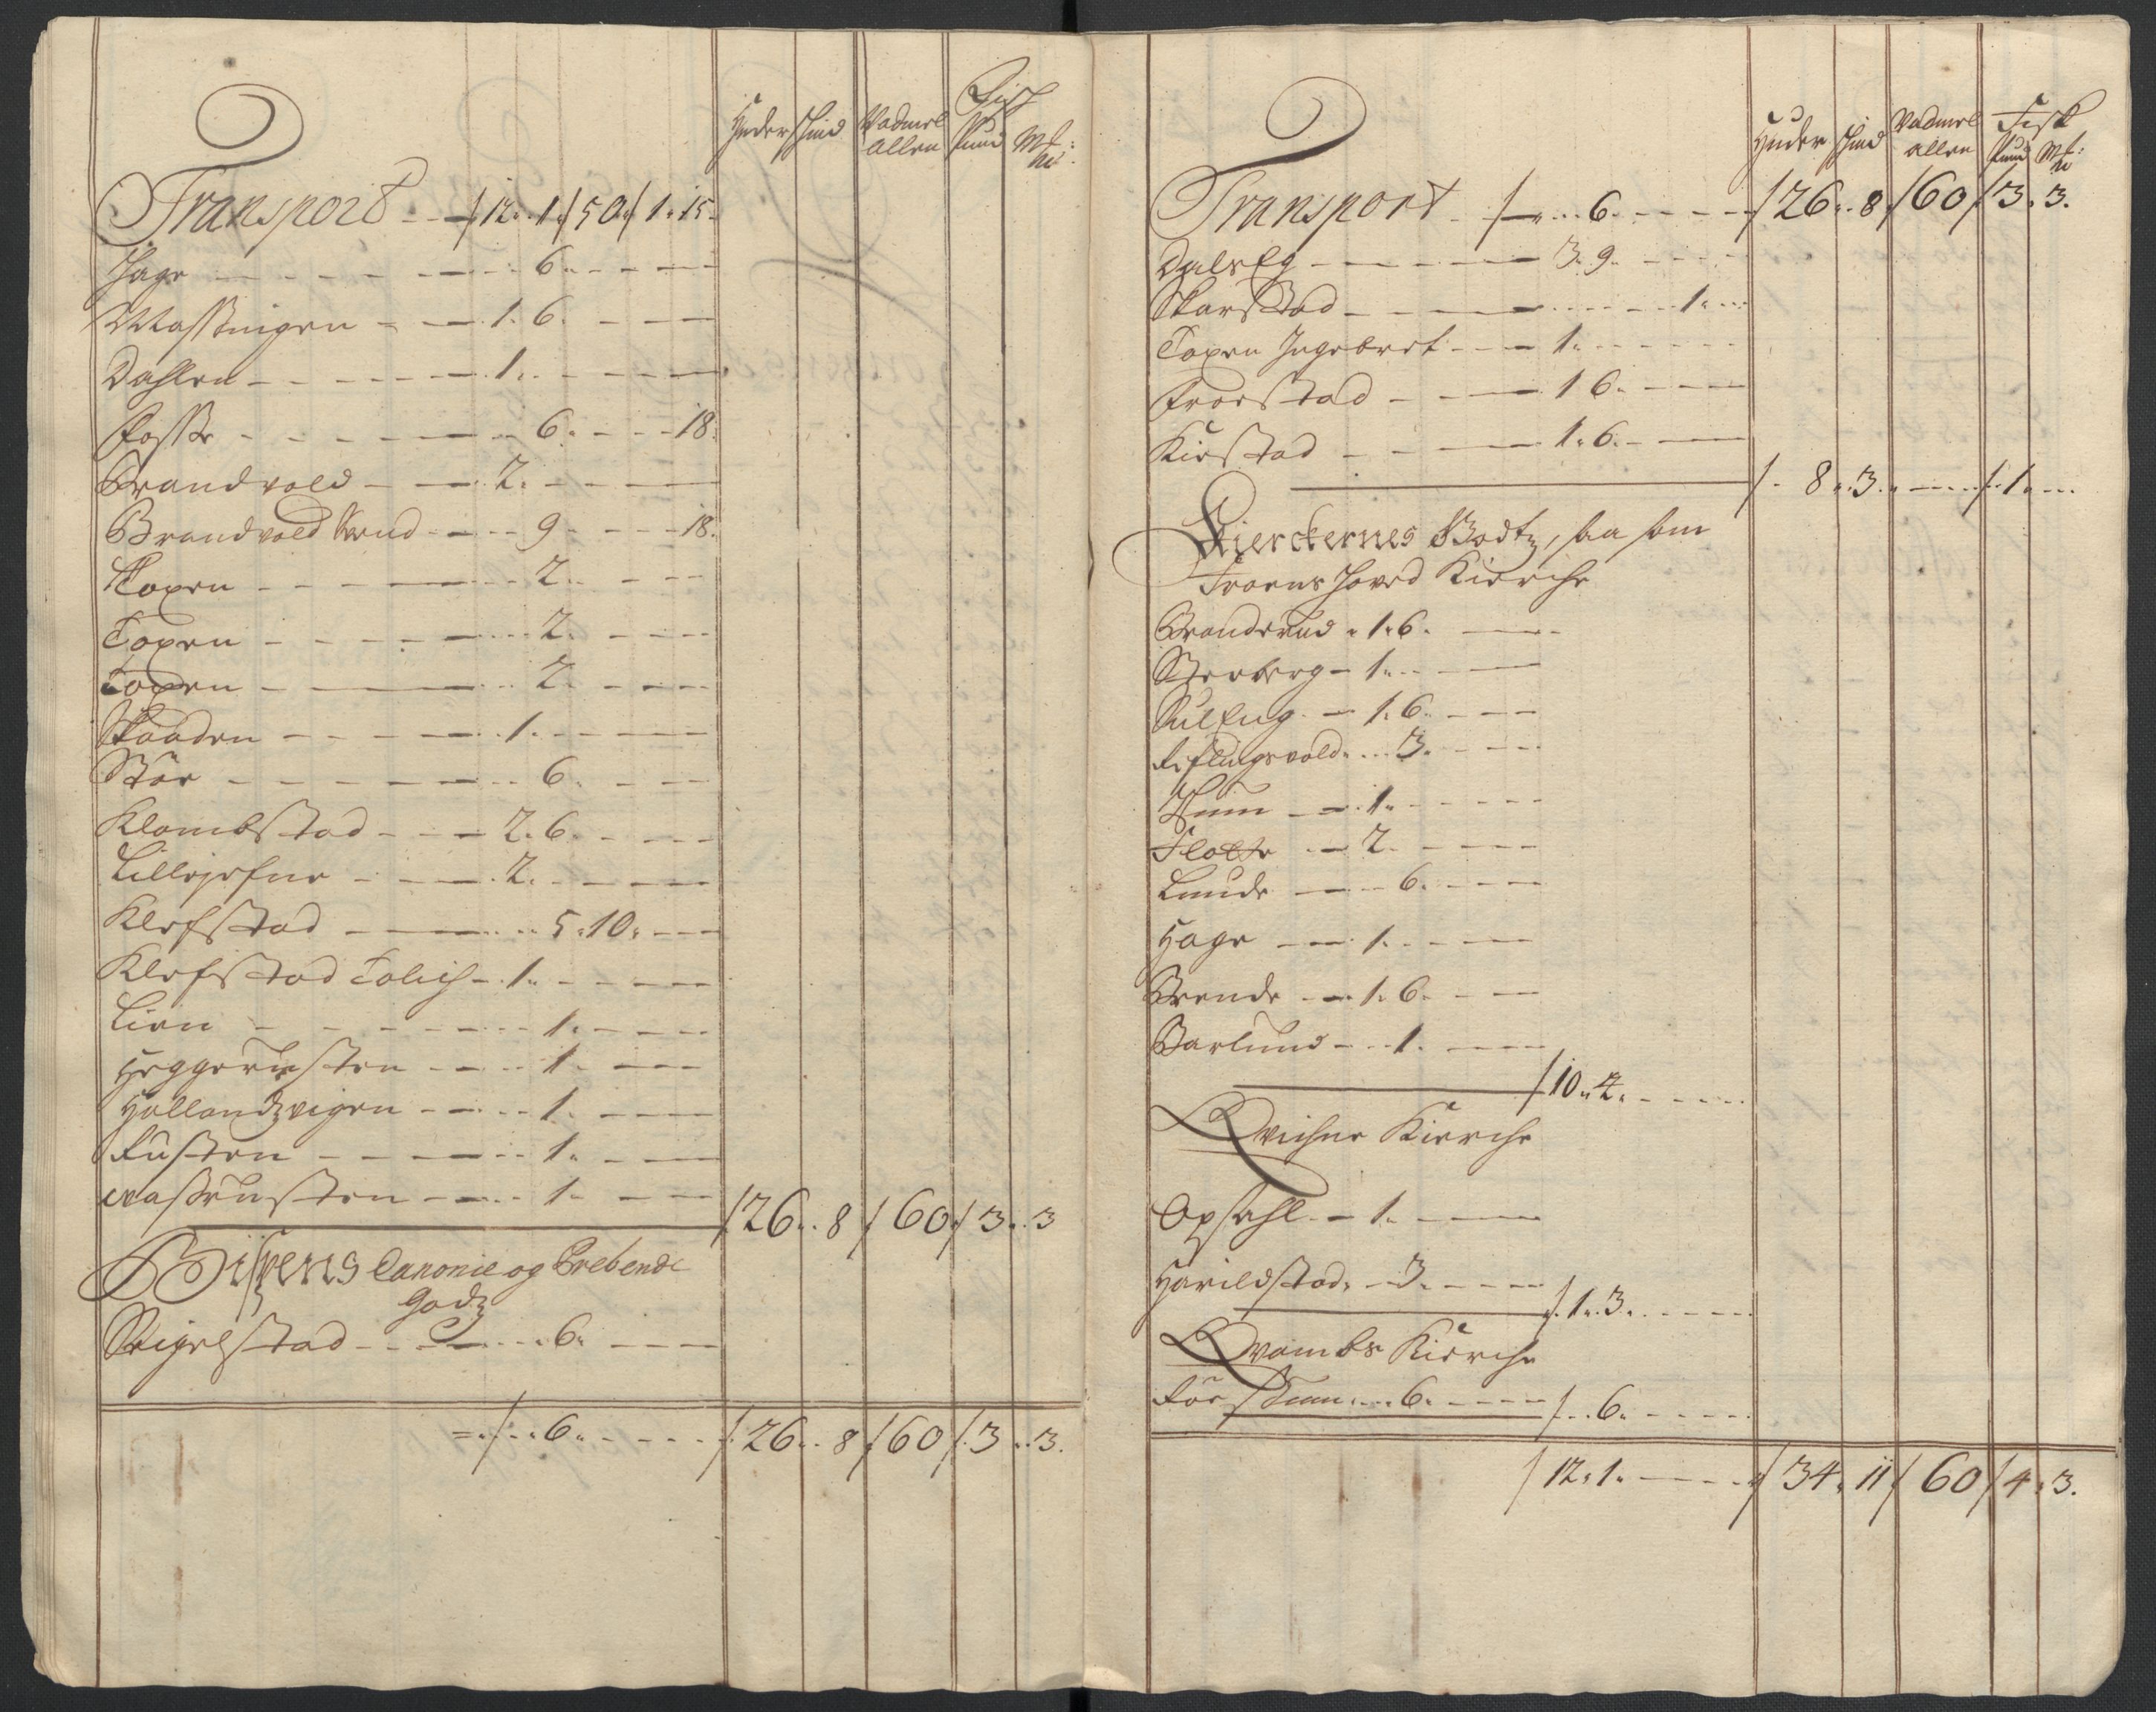 Huder skind Vadmel allen Fisk Pund Mk:
Transport - - 12. 1. 50. 1. 15.
Hage - - - 6. - -
Massingen - - 1. 6. - -
Dahlen - - - 1. - -
Fosse - - - 6. - - 18.
Brandvold - - 2. - -
Brandvold Rud - - 9. - - 18.
Toxen - - - 2. - -
Toxen - - - 2. - -
Toxen - - - 2. - -
Skaaden - - - 1. - -
Stöe - - - 6. - -
Klombstad - - 2. 6. - -
Lillejefne - - 2. - -
Klefstad - - 5. 10. - -
Klefstad - 1. - -
Lien - - - 1. - -
Heggerusten - - 1. - -
Hollandzeigen - - 1. - -
Rusten - - - 1. - -
Waserusten - - 1. - - 26. 8 60. 3. 3
Bispens Canonie og Prebende
Godz
Seigelstad - - - 6. - -
6. - - - 26. 8 60 3. 3.
Huder skind Vadmel allen Fisk Pund Mk:
Transport - - 6. - - - 26. 8 60 3. 3.
Dalseg - - - 3. 9. - -
Skarstad - - - 1. - -
Toxen Ingebret - - 1. - -
Froestad - - 1 6. - -
Kirstad - - 1. 6. - -
8. 3. - - 1. - -
Kierckernes Godtz, saa som
Froens Hoved Kierche
Branderud - 1. 6. - -
Steberg - 1. - -
Suleng - 1. 6. - -
Reflingsvold - 3. - -
Hum - 1. - -
Flotte - 2. - -
Lunde - 6. - -
Hage - 1. - -
Brende - 1. 6. - -
Barlund - 1. - -
10. 4. - -
Qvichne Kierche
Opsahl - 1. - -
Harildstad - 3. - -
1. 3. - -
Qvambs Kierche
6. - - 6. - -
12. 1. - - 34. 11 60 4. 3.